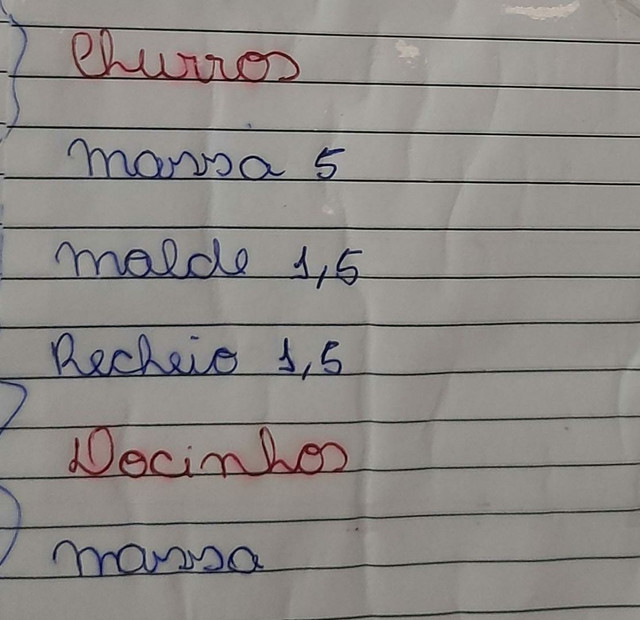 Churros
Massa 5
Molde 1,5
Recheio 1,5
Docinhos
Massa